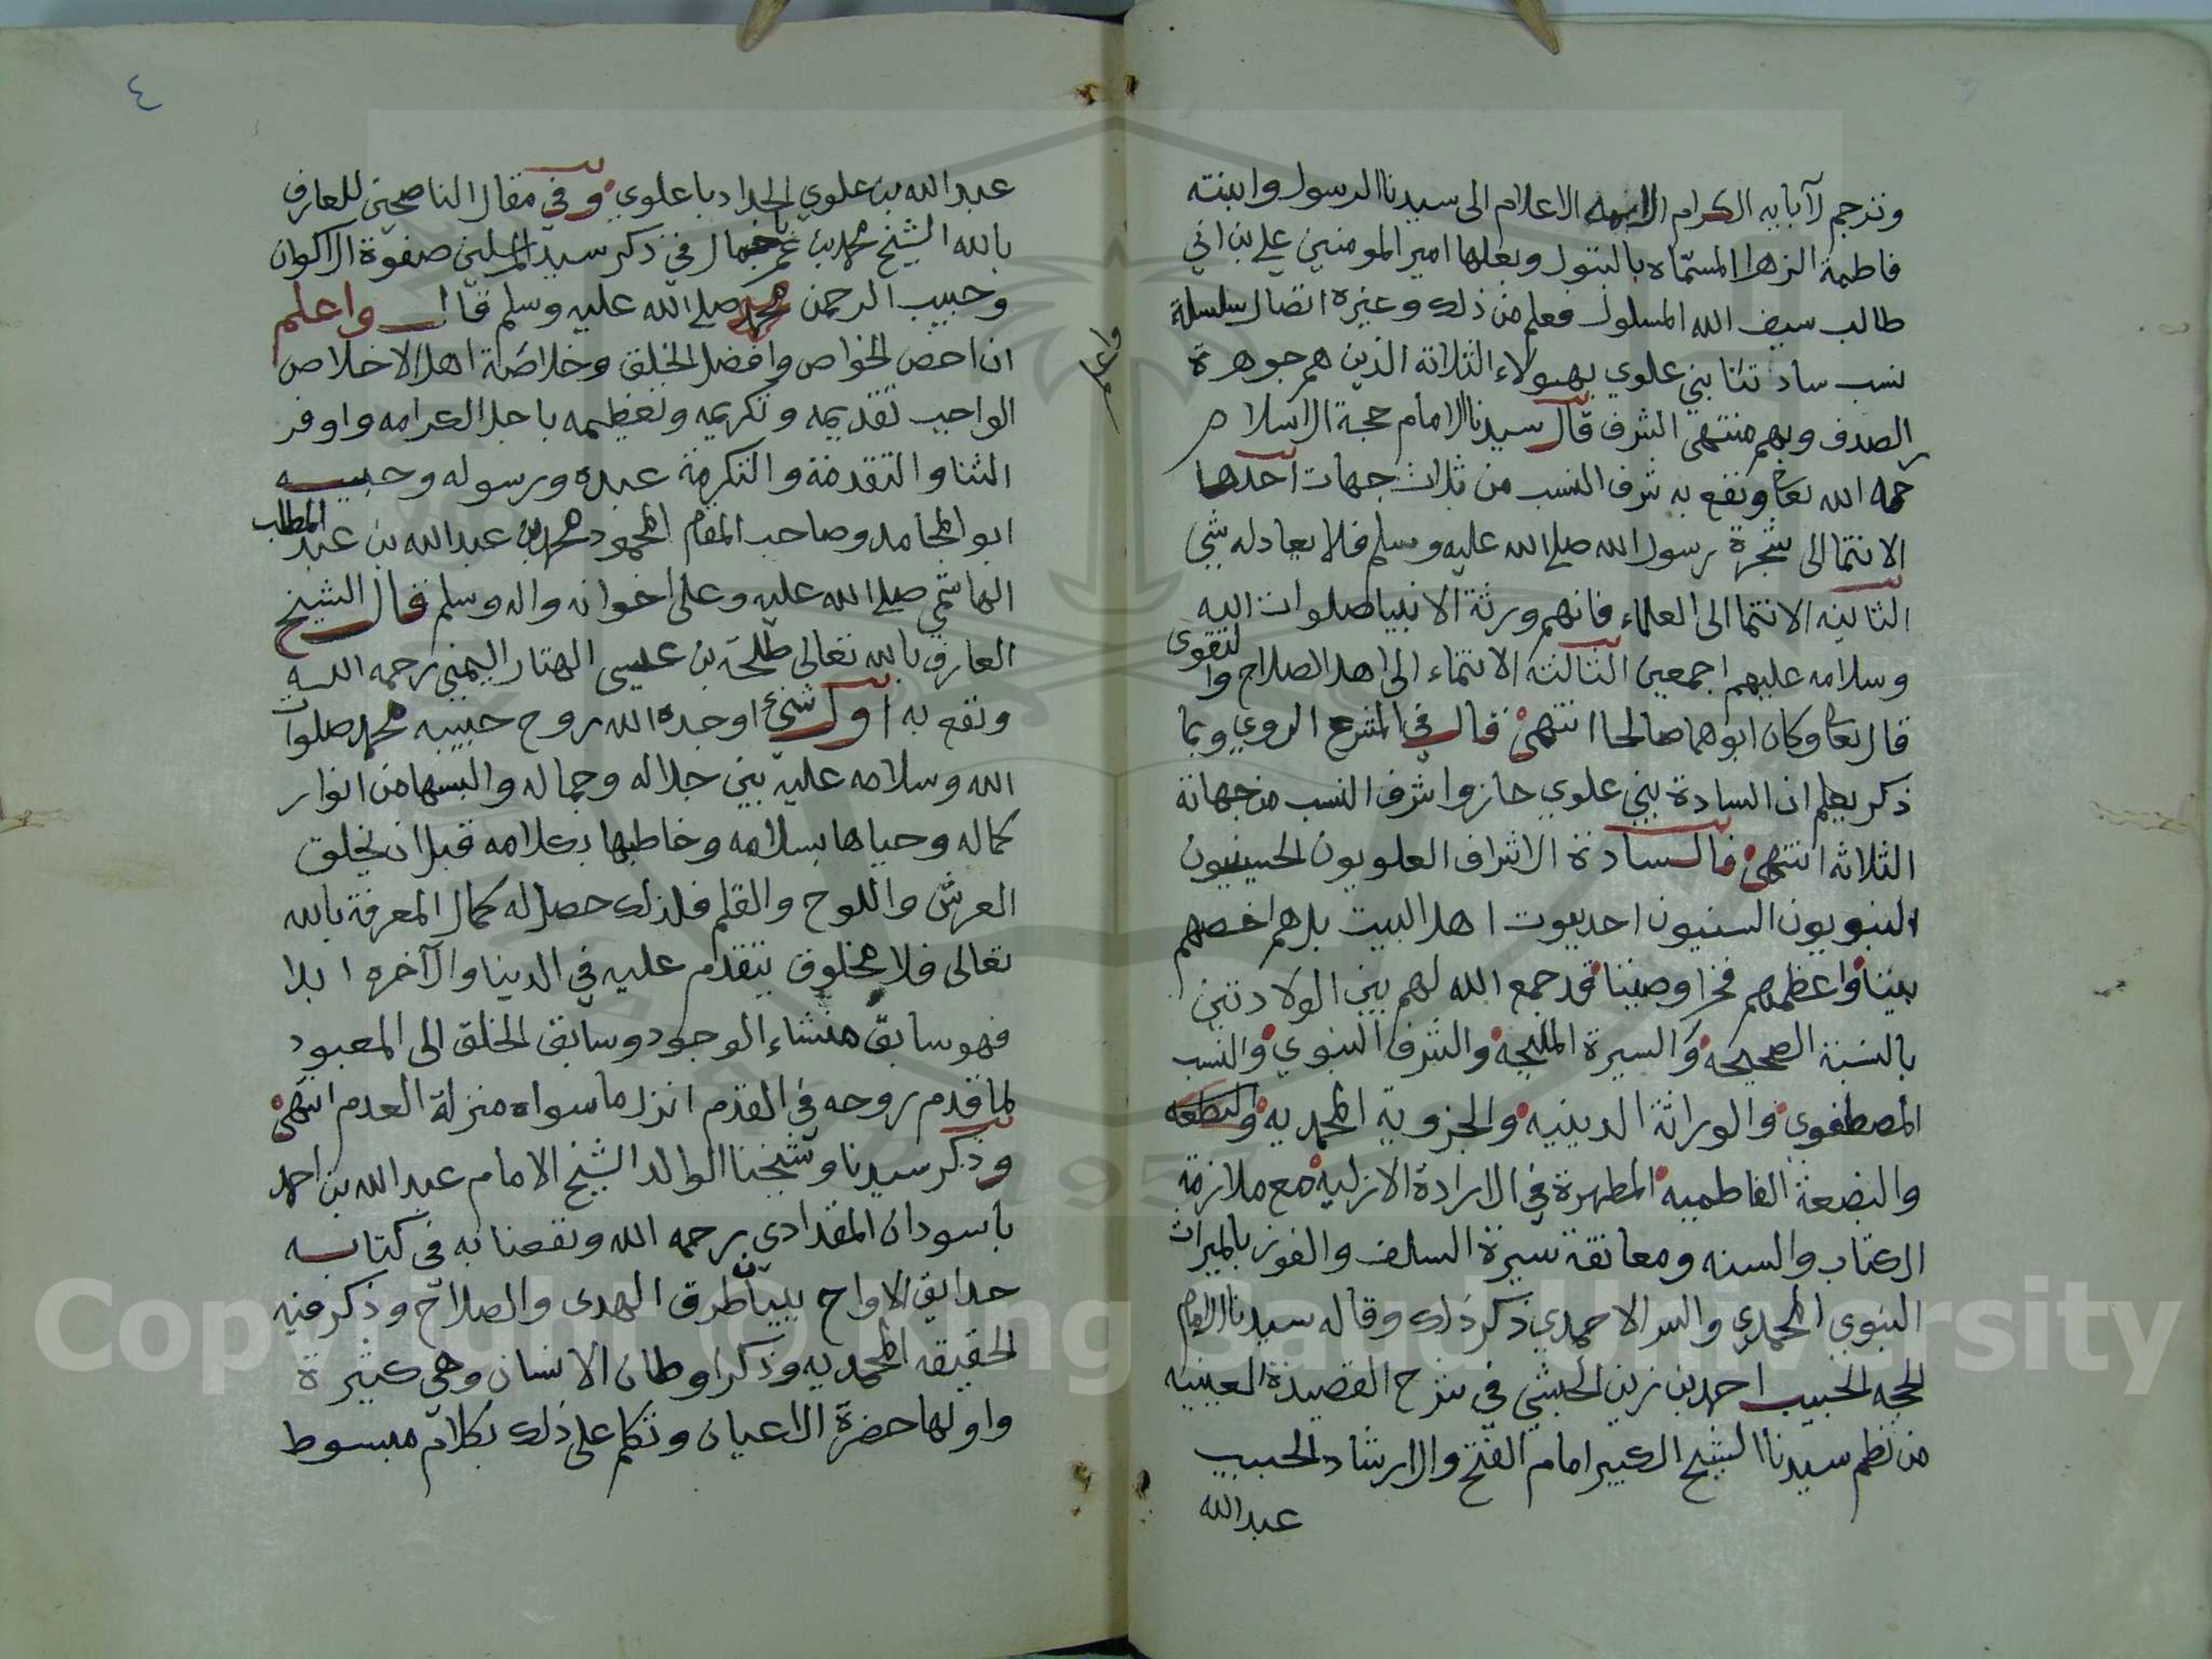 وترجم لآبايه الكرام الايمه الاعلام الى سيدنا الرسول وابنته
فاطمة الزهرا المسمّاه بالبتول وبعلها امير المومنين علي بن ابي
طالب سيف الله المسلول فعلم من ذلك وغيره اتصال سلسلة
نسب سادتنا بني علوي بهولاء الثلاثة الذين هم جوهرة
الصدف وبهم منتهى الشرف قال سيدنا الامام حجة الاسلام
رحمه الله تعا ونفع به شرف النسب من ثلاث جهات احدها
الانتما الى شجرة رسول الله صلى الله عليه وسلم فلا يعادله شي
الثانيه الانتما الى العلماء فانهم ورثة الانبيا صلوات الله
وسلامه عليهم اجمعين الثالثة الانتماء الى اهل الصلاح والتقوى
قال تعا وكان ابوهما صالحا انتهى قال في المشرع الروي وبما
ذكر يعلم ان السادة بني علوي حازوا شرف النسب من جهاته
الثلاثه انتهى فالسادة الاشراف العلويون الحسينيون
النبويون السنيون احد بيوت اهل البيت بل هم اخصهم
بيتا واعظمهم فخرا وصيتا قد جمع الله لهم بين الولادتين
بالسنة الصحيحه والسيرة المليحه والشرف النبوي والنسب
المصطفوي والوراثة الدينيه والجزوية المحمديه
والبضعة الفاطميه المطهرة في الارادة الازليه مع ملازمة
الكتاب والسنه ومعانقة سيرة السلف والفوز بالميراث
النبوي المحمدي والسر الاحمدي ذكر ذلك وقاله سيدنا الامام
الحجه الحبيب احمد بن زين الحبشي في شرح القصيدة العينيه
من نظم سيدنا الشيخ الكبير امام الفتح والارشاد الحبيب
عبدالله
واعلم
٤
عبدالله بن علوي الحداد باعلوي وفي مقال الناصحين للعارف
بالله الشيخ محمد بن عمر باجمال في ذكر سيد المرسلين صفوة الاكوان
وحبيب الرحمن محمد صلى الله عليه وسلم قال واعلم
ان اخص الخواص وافضل الخلق وخلاصة اهل الاخلاص
الواجب تقديمه وتكريمه وتعظيمه باجل الكرامه واوفر
الثنا والتقدمة والتكرمة عبده ورسوله وحبيبه
ابو المحامد وصاحب المقام المحمود محمد بن عبدالله بن عبد المطلب
الهاشمي صلى الله عليه وعلى اخوانه واله وسلم قال الشيخ
العارف بالله تعالى طلحة بن عيسى الهتار اليمني رحمه الله
ونفع به اول شئ اوجده الله روح حبيبه محمد صلوات
الله وسلامه عليه بين جلاله وجماله والبسها من انوار
كماله وحياها بسلامه وخاطبها بكلامه قبل ان يخلق
العرش واللوح والقلم فلذلك حصل له كمال المعرفة بالله
تعالى فلا مخلوق يتقدم عليه في الدنيا والآخره ابدا
فهو سابق منشاء الوجود وسابق الخلق الى المعبود
لما قدم روحه في القدم انزل ما سواه منزلة العدم انتهى
وذكر سيدنا وشيخنا الوالد الشيخ الامام عبدالله بن احمد
باسودان المقدادي رحمه الله ونفعنا به في كتابه
حدايق الارواح ببيان طرق الهدى والصلاح وذكر فيه
الحقيقه المحمديه وذكر اوطان الانسان وهي كثيرة
واولها حضرة الاعيان وتكلم على ذلك بكلام مبسوط
Copyright © King Saud University
1957